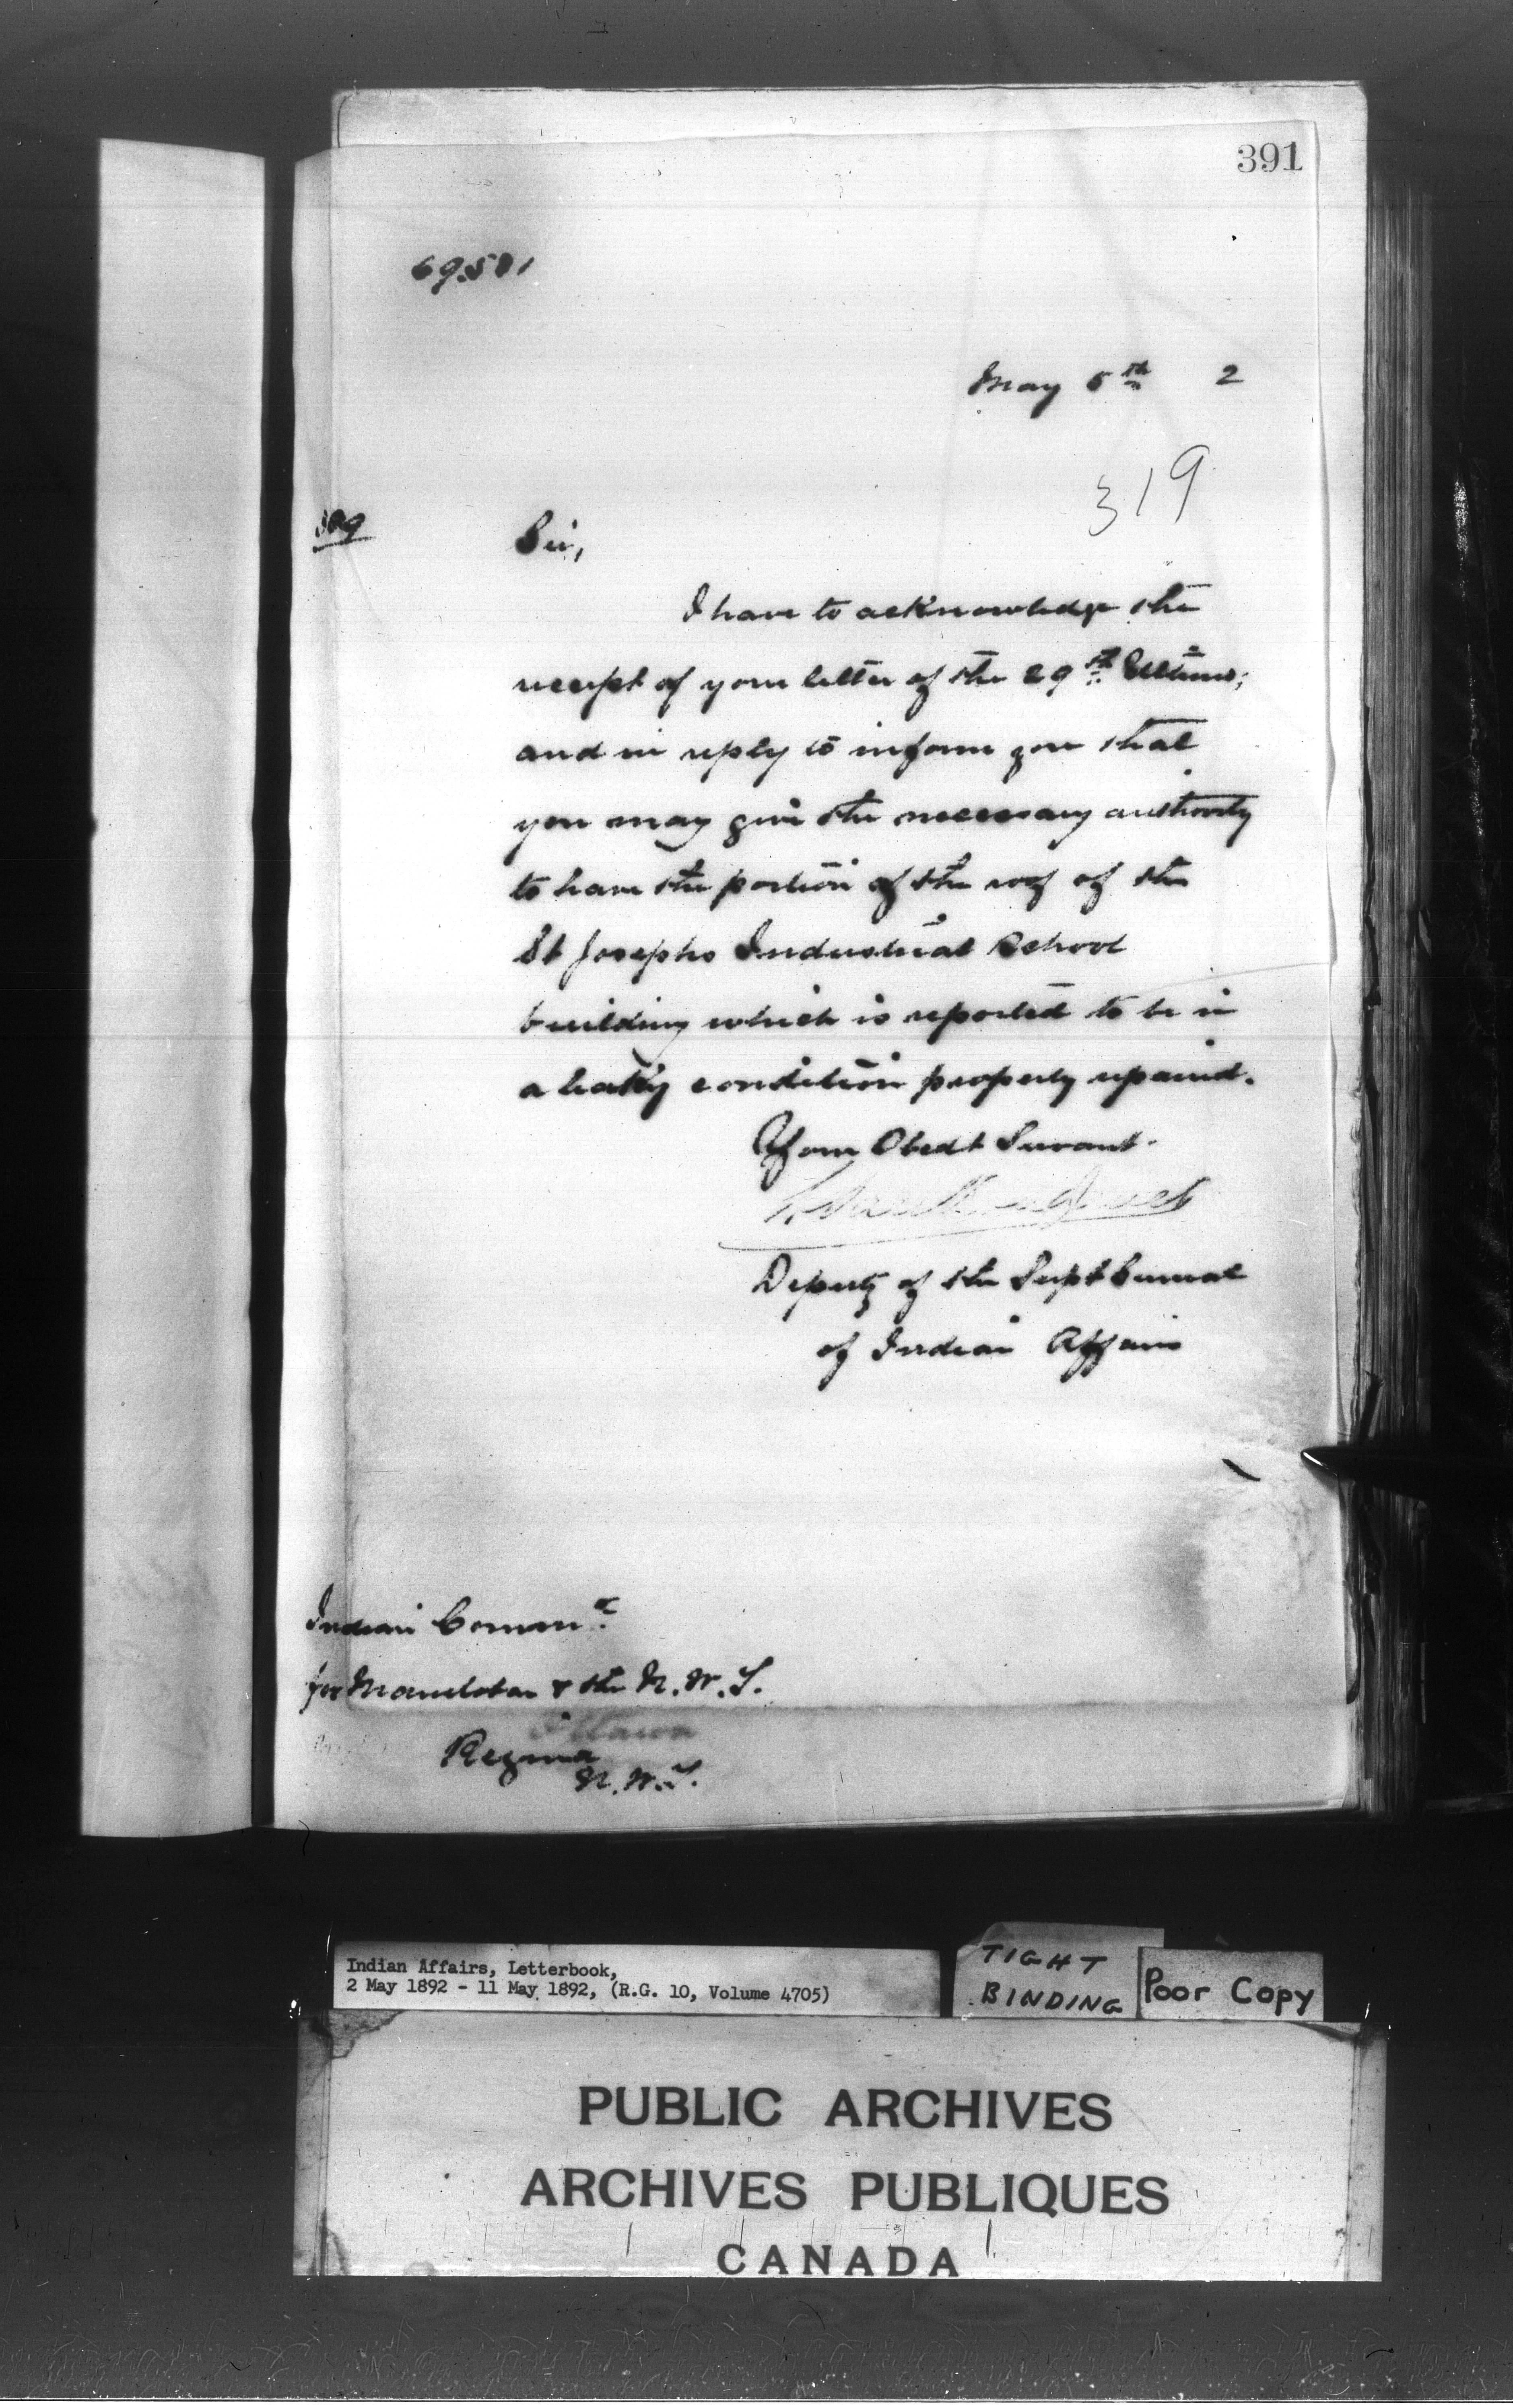 391
69,501
May 5th 2
319
309
Sir,
I have to acknowledge the
receipt of your letter of the 29th Ultimo;
and in reply to inform you that
you may give the necessary authority
to have the portion of the roof of the
St Josephs Industrial School
building which is reported to be in
a leaky condition properly repaired.
Your Obedt Servant.
Deputy of the Supt General
of Indian Affairs
Indian Commr.
for Manitoba & the N.W.T.
Ottawa
Regina
N.W.T.
Indian Affairs, Letterbook,
2 May 1892 - 11 May 1892, (R.G. 10, Volume 4705)
TIGHT
BINDING
Poor Copy
PUBLIC ARCHIVES
ARCHIVES PUBLIQUES
CANADA